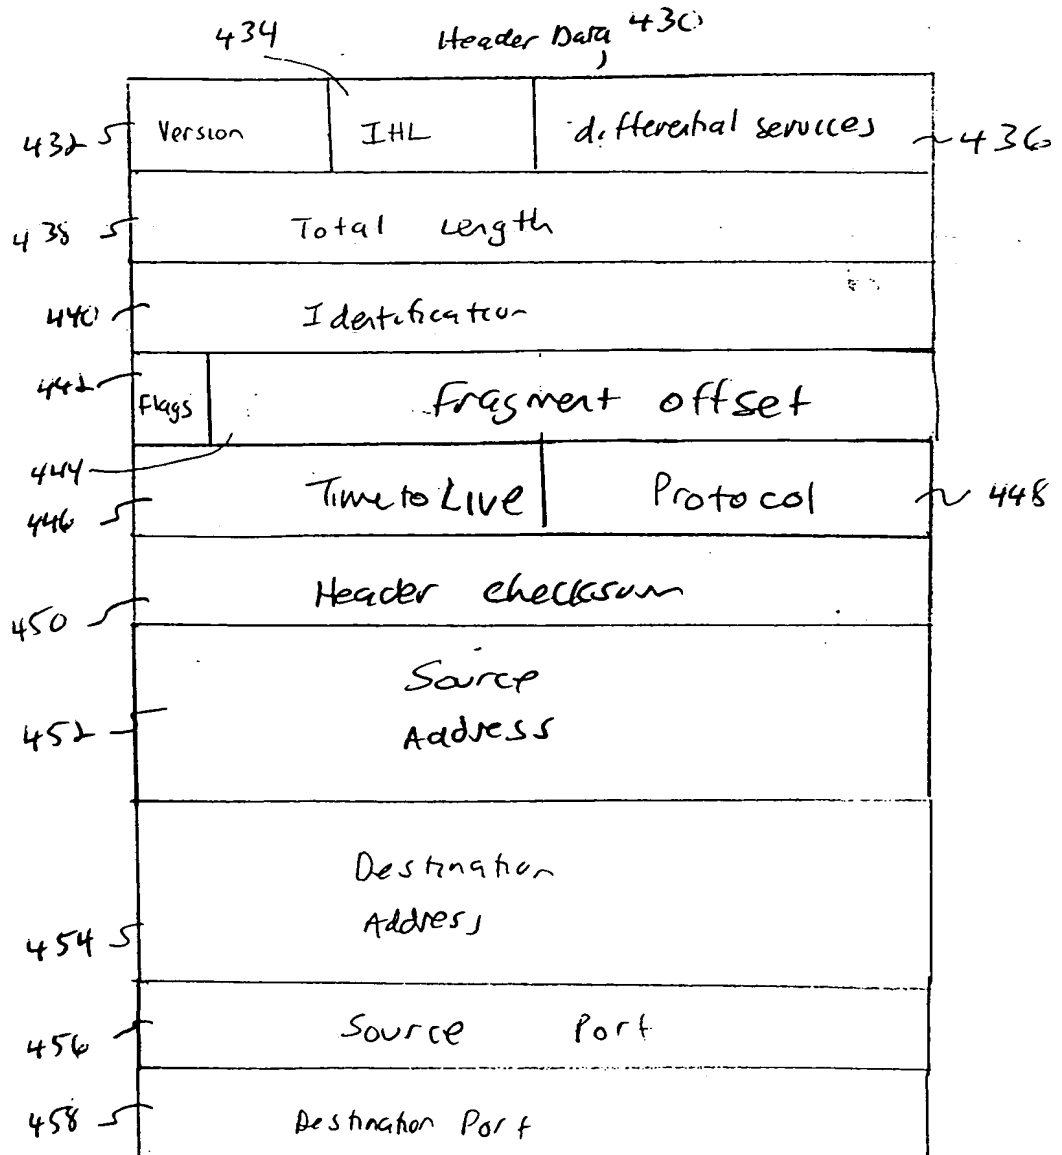 434 Header Data 430
432 Version IHL differential services 436
438 Total Length
440 Identification
442 Flags Fragment offset
444
446 Time to Live Protocol 448
450 Header checksum
452 Source
Address
Destination
Address
454
456 Source Port
458 Destination Port